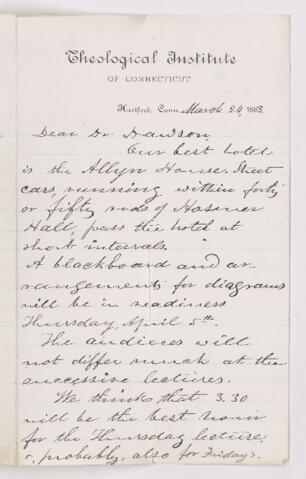 Theological Institute
OF CONNECTICUT
Hartford, Conn. March 24, 1883.
Dear Dr. Dawson,
Our best hotel
is the Allyn House. Street
cars, running within forty
or fifty rods of Hosmer
Hall, pass the hotel at
short intervals.
A blackboard and ar-
rangements for diagrams
will be in readiness
Thursday, April 5th.
The audieces will
not differ much at the
successive lectures.
We thinks that 3.30
will be the best hour
for the Thursday lecture,
&, probably, also for Friday's.